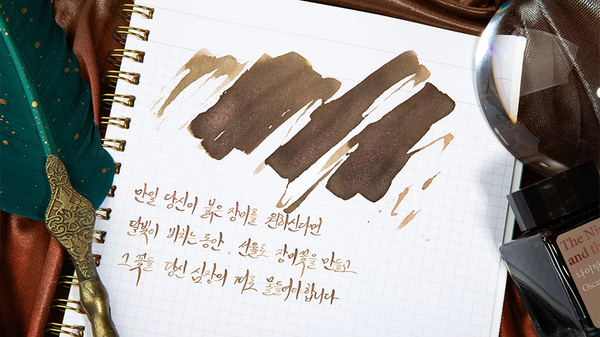 만일 당신이 붉은 장미를 원하신다면
달빛이 비치는 동안, 선율로 장미꽃을 만들고
그 꽃을 당신 심장의 피로 물들여야 합니다
The Ni
and th
나이팅
Oscar